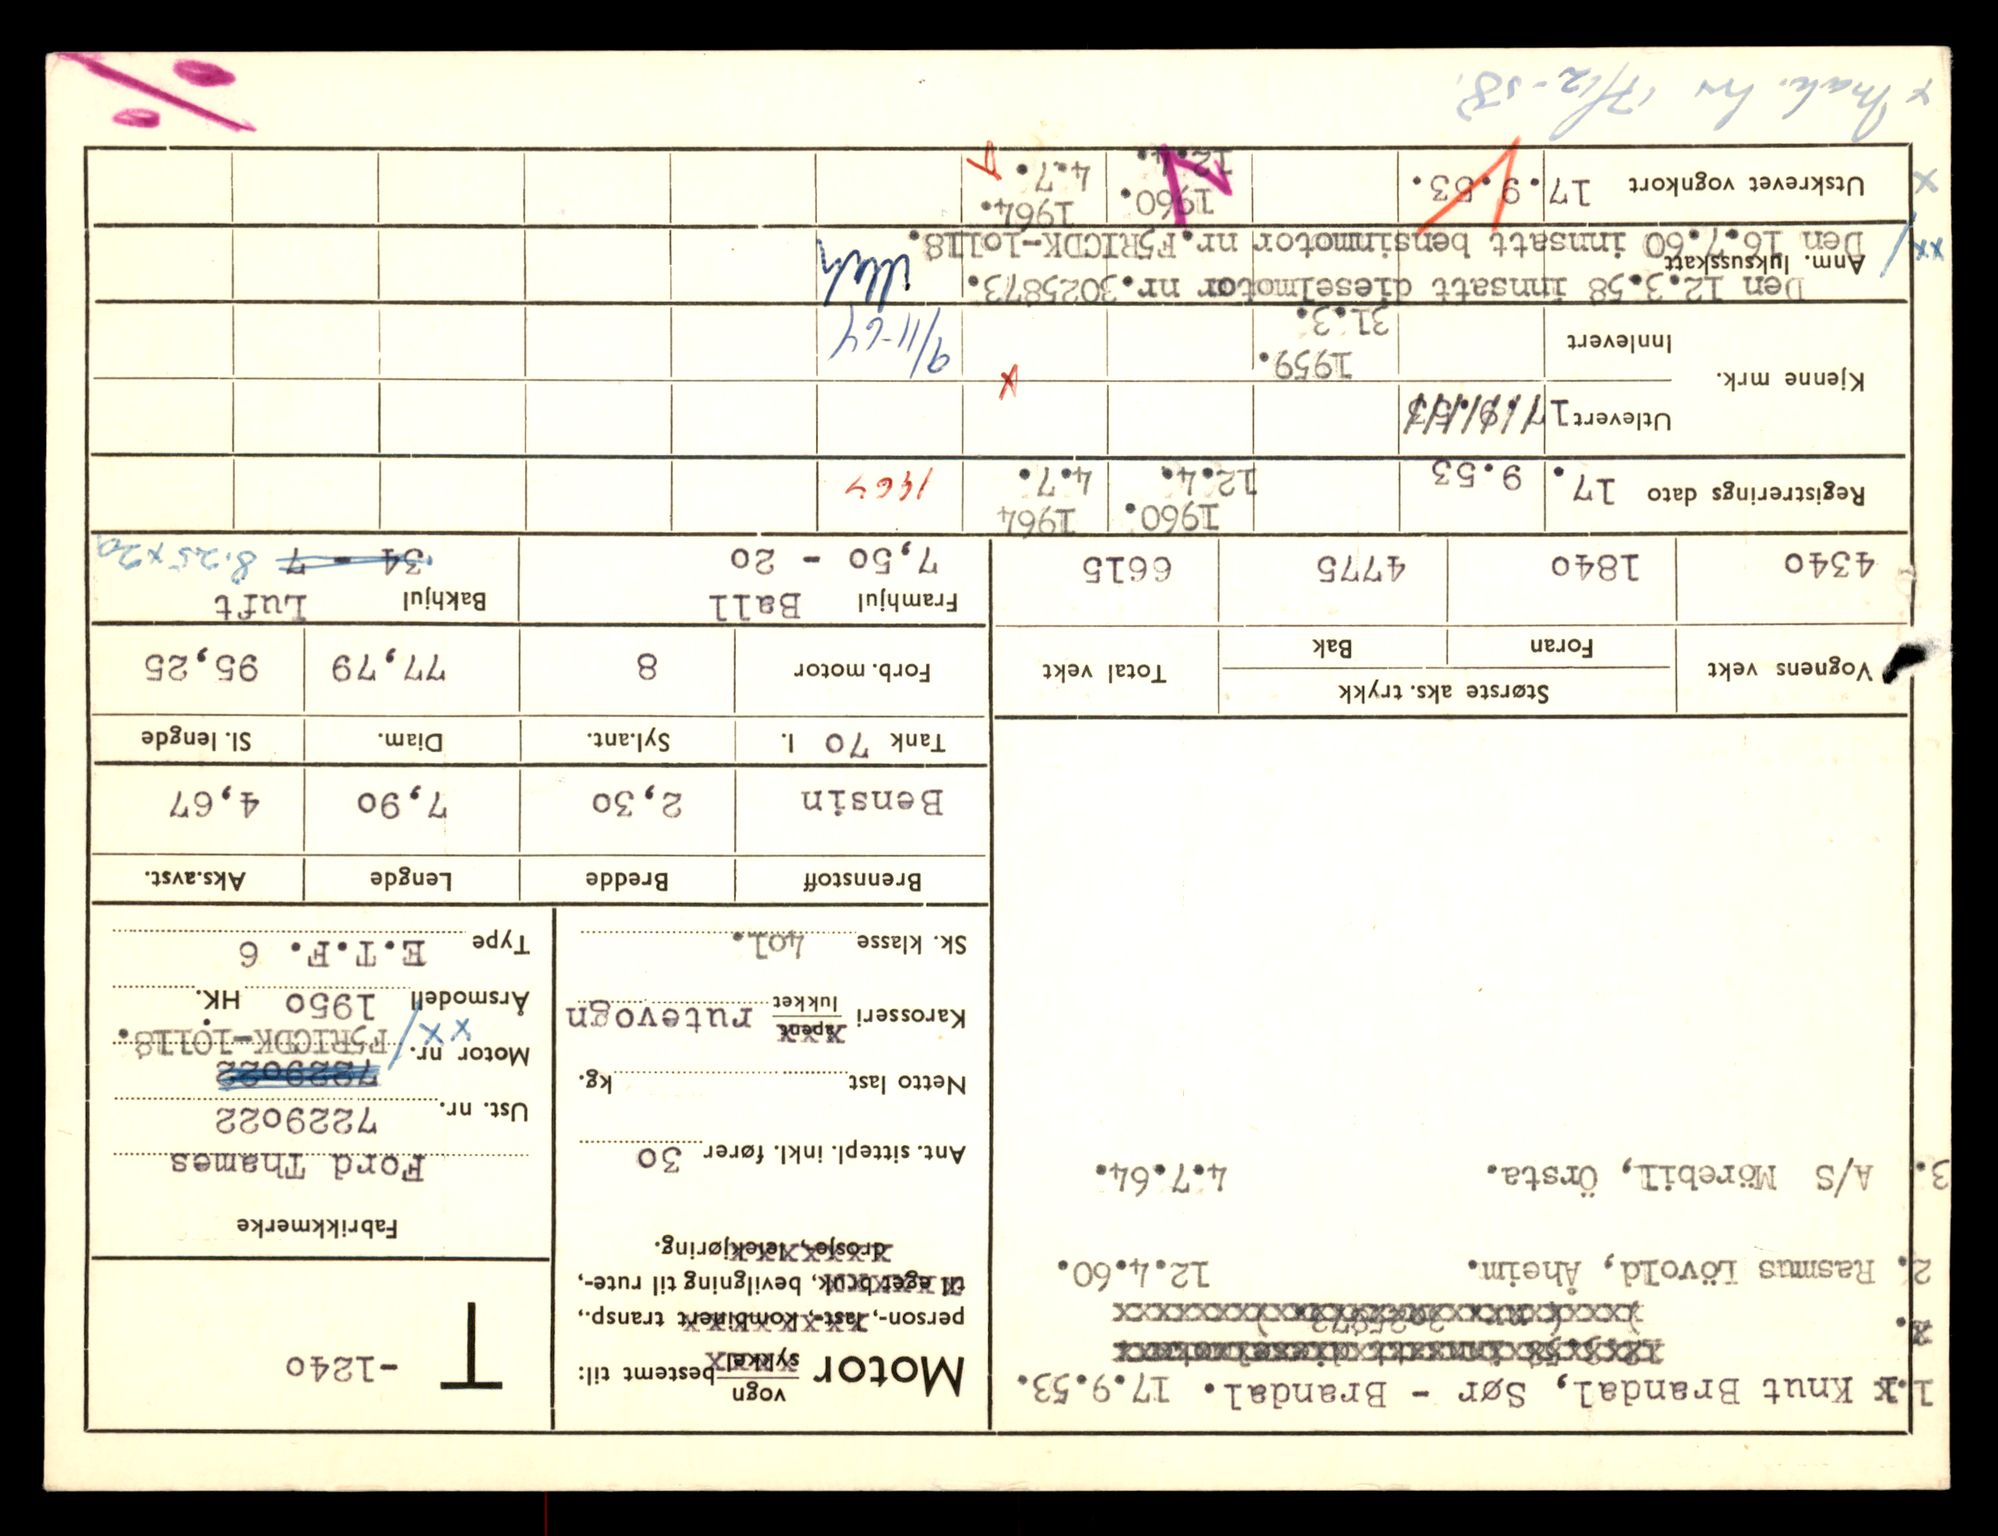 1. Knut Brandal, Sør - Brandal. 17.9.53.
12.3.58 innsatt dieselmotor
( nr. 3025873 )
2. Rasmus Lövold, Åheim. 12.4.60.
3. A/S Mörebil, Örsta. 4.7.64.
Motor vogn sykkel bestemt til:
person-, last-, kombinert transp.,
til eget bruk, bevilgning til rute-,
drosje, leiekjøring.
Ant. sittepl. inkl. fører 30
Netto last kg.
Karosseri åpent lukket rutevogn
Sk. klasse 401.
T -1240
Fabrikkmerke
Ford Thames
Ust. nr. 7229022
7229022
Motor nr. F5RICDK-10118. xx/
Årsmodell 1950 HK.
Type E.T.F. 6
Brennstoff Bredde Lengde Aks.avst.
Bensin 2,30 7,90 4,67
Tank 70 l. Syl.ant. Diam. Sl. lengde
Forb. motor 8 77,79 95,25
Vognens vekt Største aks. trykk Total vekt
Foran Bak
4340 1840 4775 6615
Framhjul Ball Bakhjul Luft
7,50 - 20 34 - 7 8.25 x 20
1960. 1964
Registrerings dato 17. 9.53 12.4. 4.7. 1964
Kjenne mrk.
Utlevert 17.9.53
x
Innlevert 1959.
31.3.
9/11-64
Den 12.3.58 innsatt dieselmotor nr. 3025873.
Anm. luksusskatt
xx/ Den 16.7.60 innsatt bensinmotor nr. F5RICDK-10118.
1960. 1964.
x Utskrevet vognkort 17. 9.53. 12.4. 4.7.
x 17/12-58.